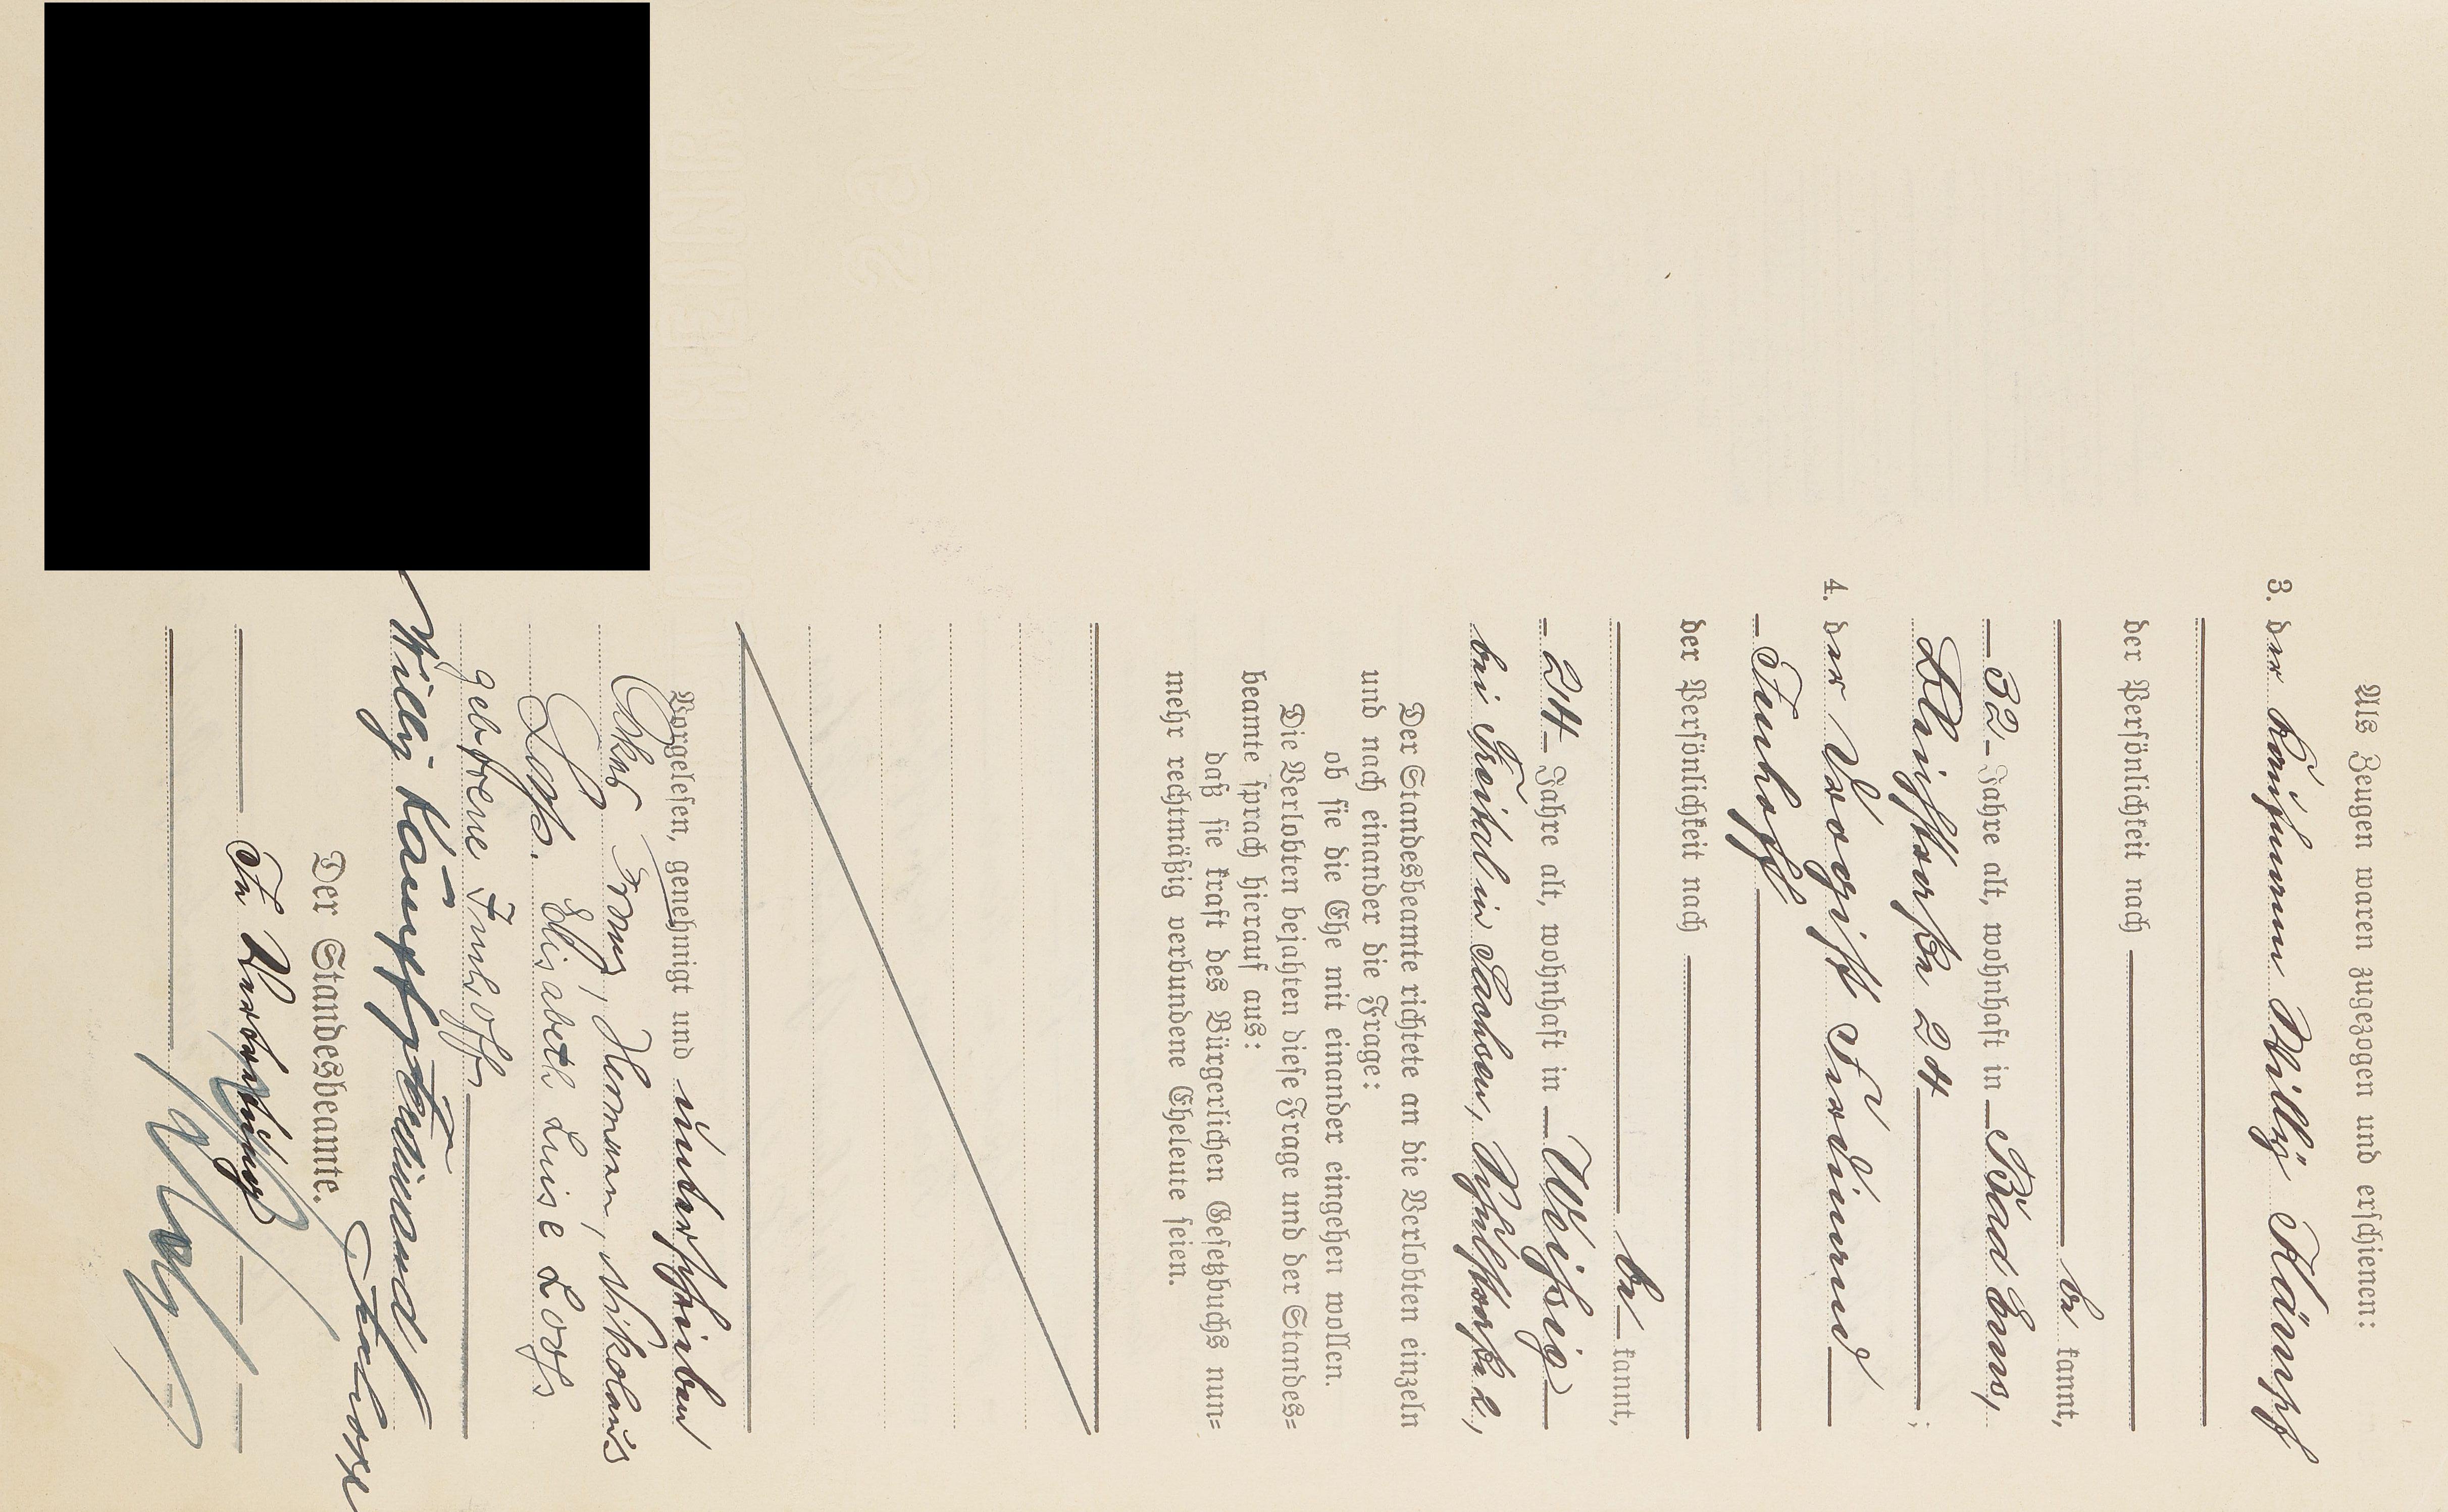 Als Zeugen waren zugezogen und erschienen:
3. der Kaufmann Willy Kämpf
der Persönlichkeit nach
be kannt,
32 Jahre alt, wohnhaft in Bad Ems,
Bleichstraße 24 ;
4. der Drogist Ferdinand
Imhoff
der Persönlichkeit nach
be kannt,
24 Jahre alt, wohnhaft in Weißig
bei Freital in Sachsen, Schulstraße 2,
Der Standesbeamte richtete an die Verlobten einzeln
und nach einander die Frage:
ob sie die Ehe mit einander eingehen wollen.
Die Verlobten bejahten diese Frage und der Standes=
beamte sprach hierauf aus:
daß sie kraft des Bürgerlichen Gesetzbuchs nun=
mehr rechtmäßig verbundene Eheleute seien.
Vorgelesen, genehmigt und unterschrieben
Franz, Hermann, Nikolaus
Elisabeth Luise
geborene Imhoff
Willy Kämpf Ferdinand Imhoff
Der Standesbeamte.
In Vertretung